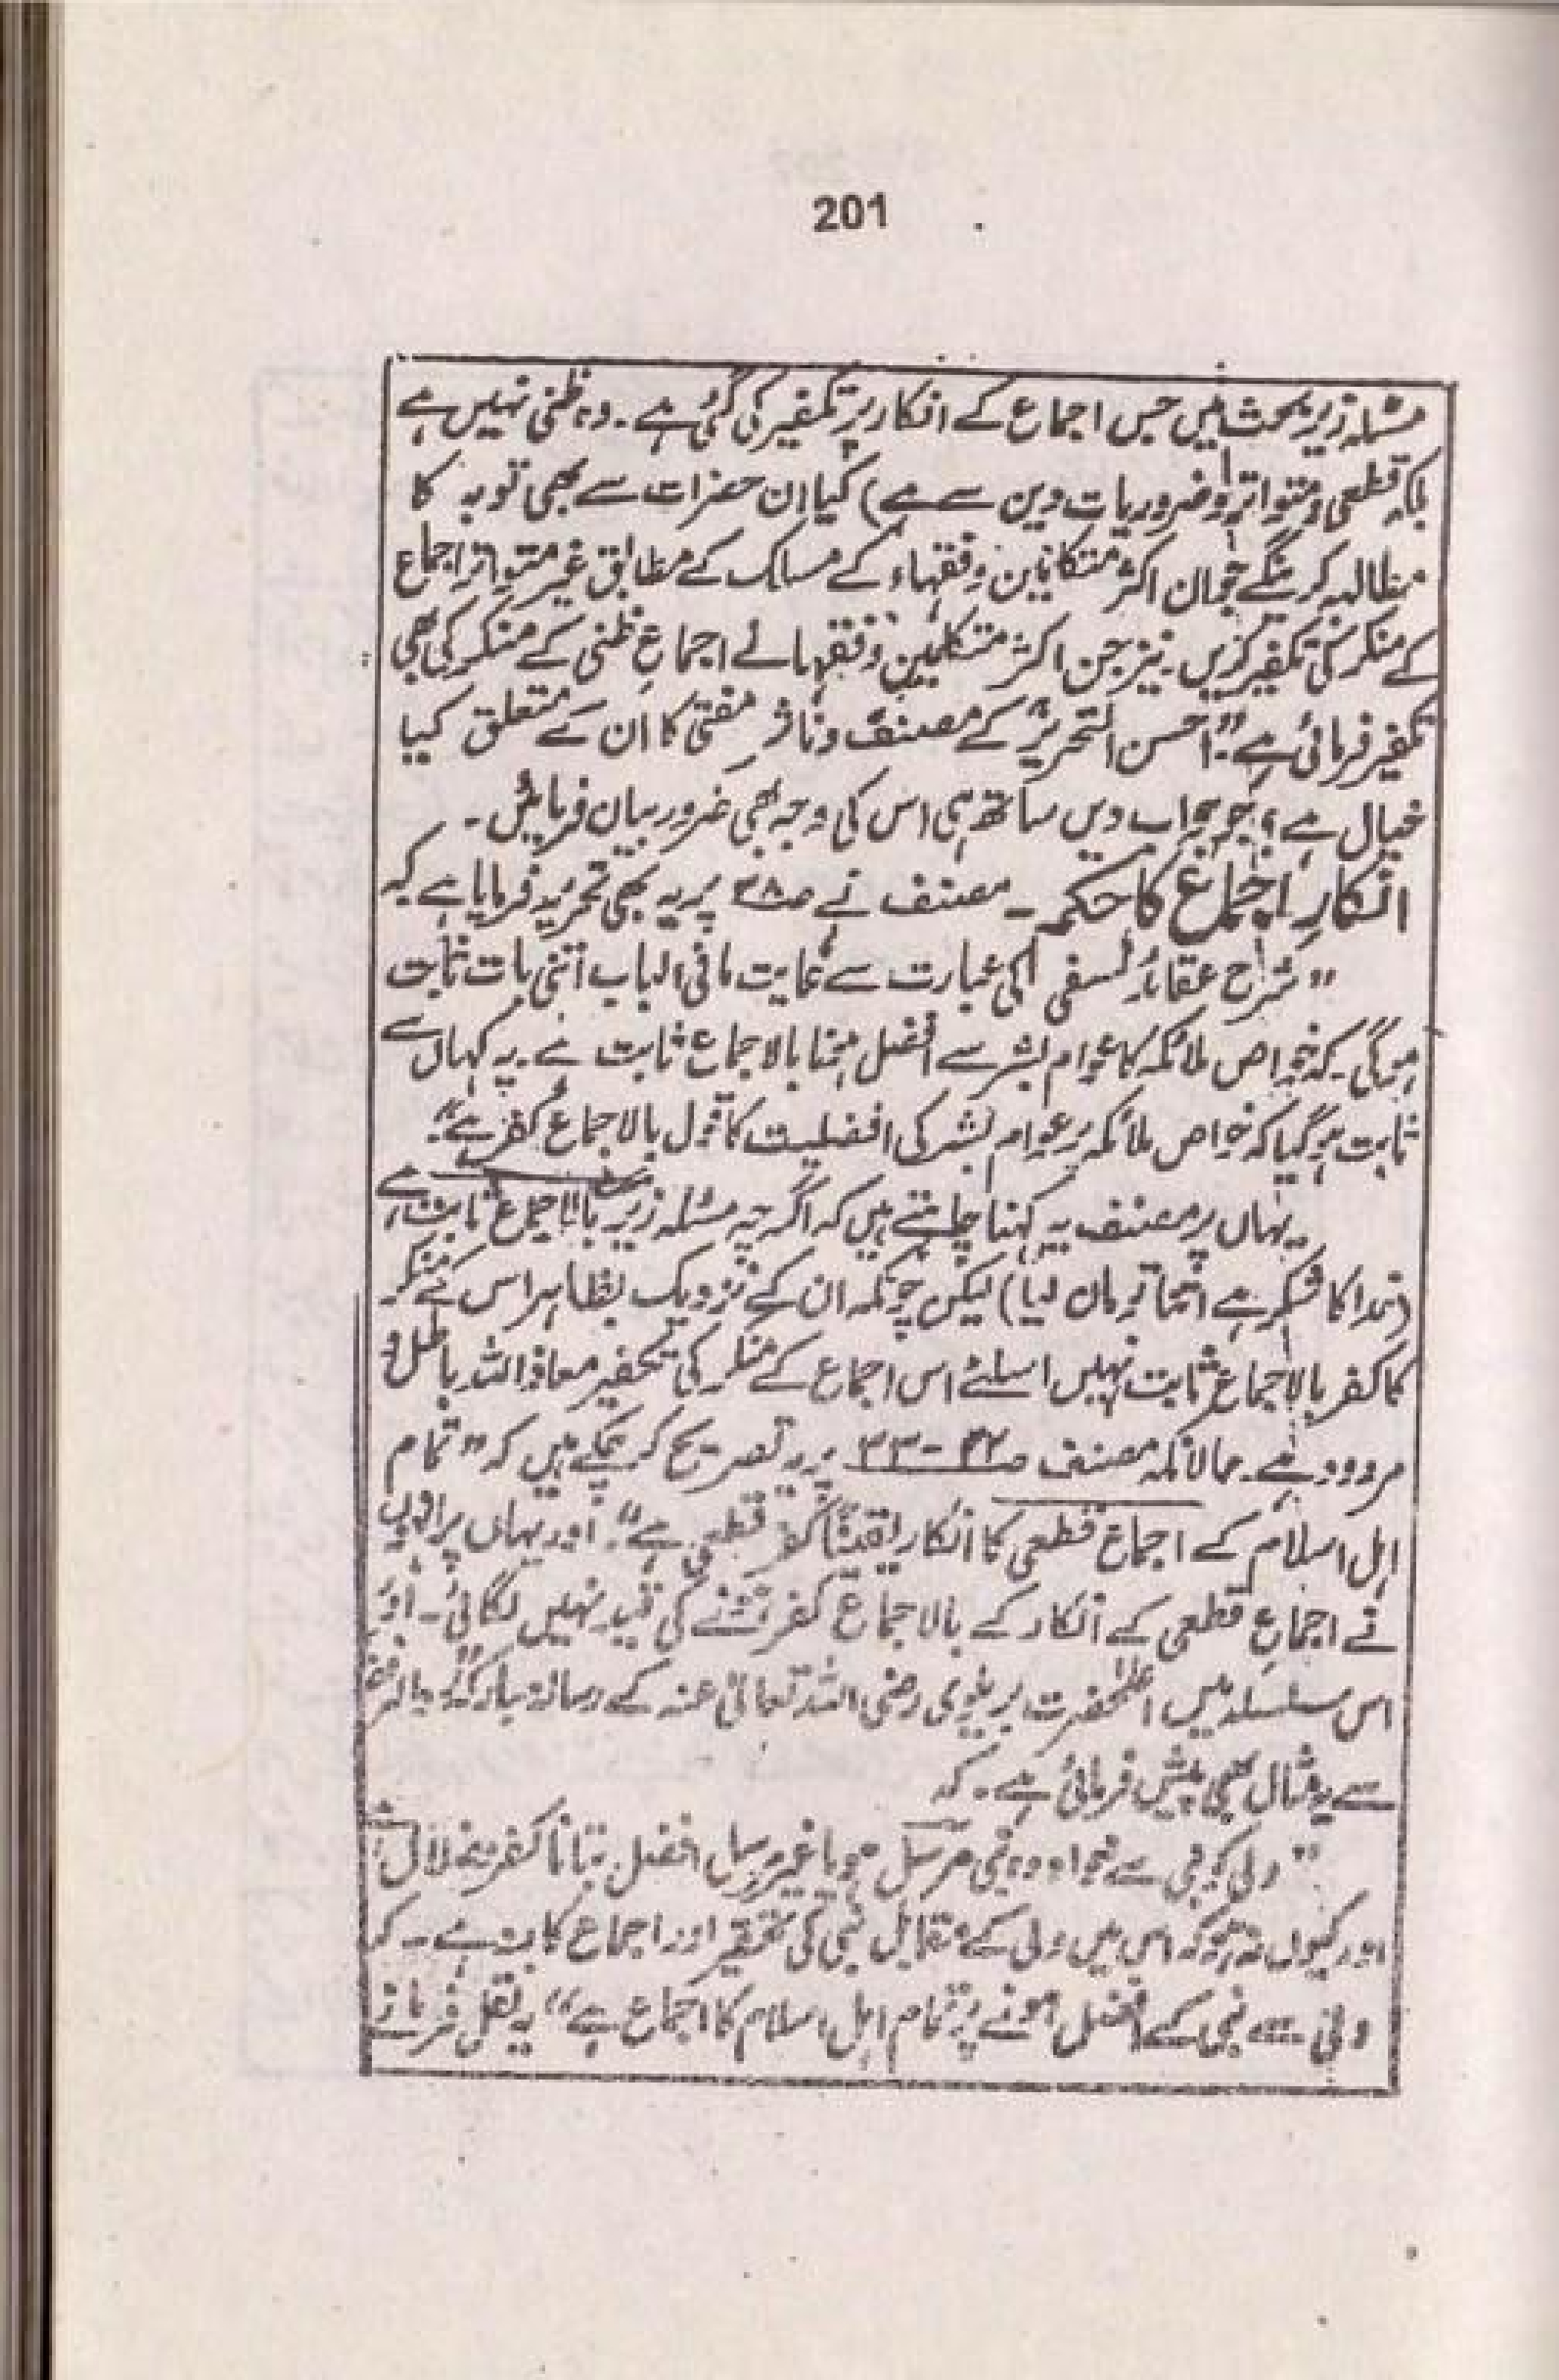 201
مسئلہ زیر بحث میں جس اجماع کے انکار پر تکفیر کی گئی ہے۔ وہ ظنی نہیں ہے
بلکہ قطعی و متواتر و ضروریات دین سے ہے) کیا ان حضرات سے بھی توبہ کا
مطالبہ کرینگے جو ان اکثر متکلمین و فقہاء کے مسلک کے مطابق غیر متواتر اجماع
کے منکر کی تکفیر کریں۔ نیز جن اکثر متکلمین و فقہا نے اجماع ظنی کے منکر کی بھی
تکفیر فرمائی ہے "احسن التحریر" کے مصنف و مفتی کا ان کے متعلق کیا
خیال ہے؟ جو جواب دیں ساتھ ہی اس کی وجہ بھی ضرور بیان فرمائیں۔
انکارِ اجماع کا حکم۔ مصنف نے ص۳۸ پر یہ بھی تحریر فرمایا ہے کہ
"شرح عقائد نسفی کی عبارت سے غایت مافی الباب اتنی بات ثابت
ہوگی۔ کہ خواص ملائکہ کا عوام بشر سے افضل ہونا بالاجماع ثابت ہے۔ یہ کہاں سے
ثابت ہوگیا کہ خواص ملائکہ پر عوام بشر کی افضلیت کا قول بالاجماع کفر ہے"۔
یہاں پر مصنف یہ کہنا چاہتے ہیں کہ اگرچہ مسئلہ زیر بحث بالاجماع ثابت ہے
(خدا کا شکر ہے اتنا تو مان لیا) لیکن چونکہ ان کے نزدیک بظاہر اس کے منکر
کا کفر بالاجماع ثابت نہیں اسلئے اس اجماع کے منکر کی تکفیر معاذ اللہ باطل و
مردود ہے۔ حالانکہ مصنف ص۳۲-۳۳ پر یہ تصریح کر چکے ہیں کہ "تمام
اہل اسلام کے اجماع قطعی کا انکار یقیناً کفر قطعی ہے"۔ اور یہاں پر انہوں
نے اجماع قطعی کے انکار کے بالاجماع کفر ہونے کی قید نہیں لگائی۔ اور
اس سلسلہ میں اعلیٰحضرت بریلوی رضی اللہ تعالیٰ عنہ کے رسالہ مبارکہ
سے یہ مثال بھی پیش فرمائی ہے۔ کہ
"ولی کو نبی سے خواہ وہ نبی مرسل ہو یا غیر مرسل افضل بتانا کفر و ضلال ہے
اور کیوں نہ ہو کہ اس میں ولی کے مقابل نبی کی تحقیر اور اجماع کا رد ہے۔ کہ
ولی سے نبی کے افضل ہونے پر تمام اہل اسلام کا اجماع ہے" یہ نقل فرمانے